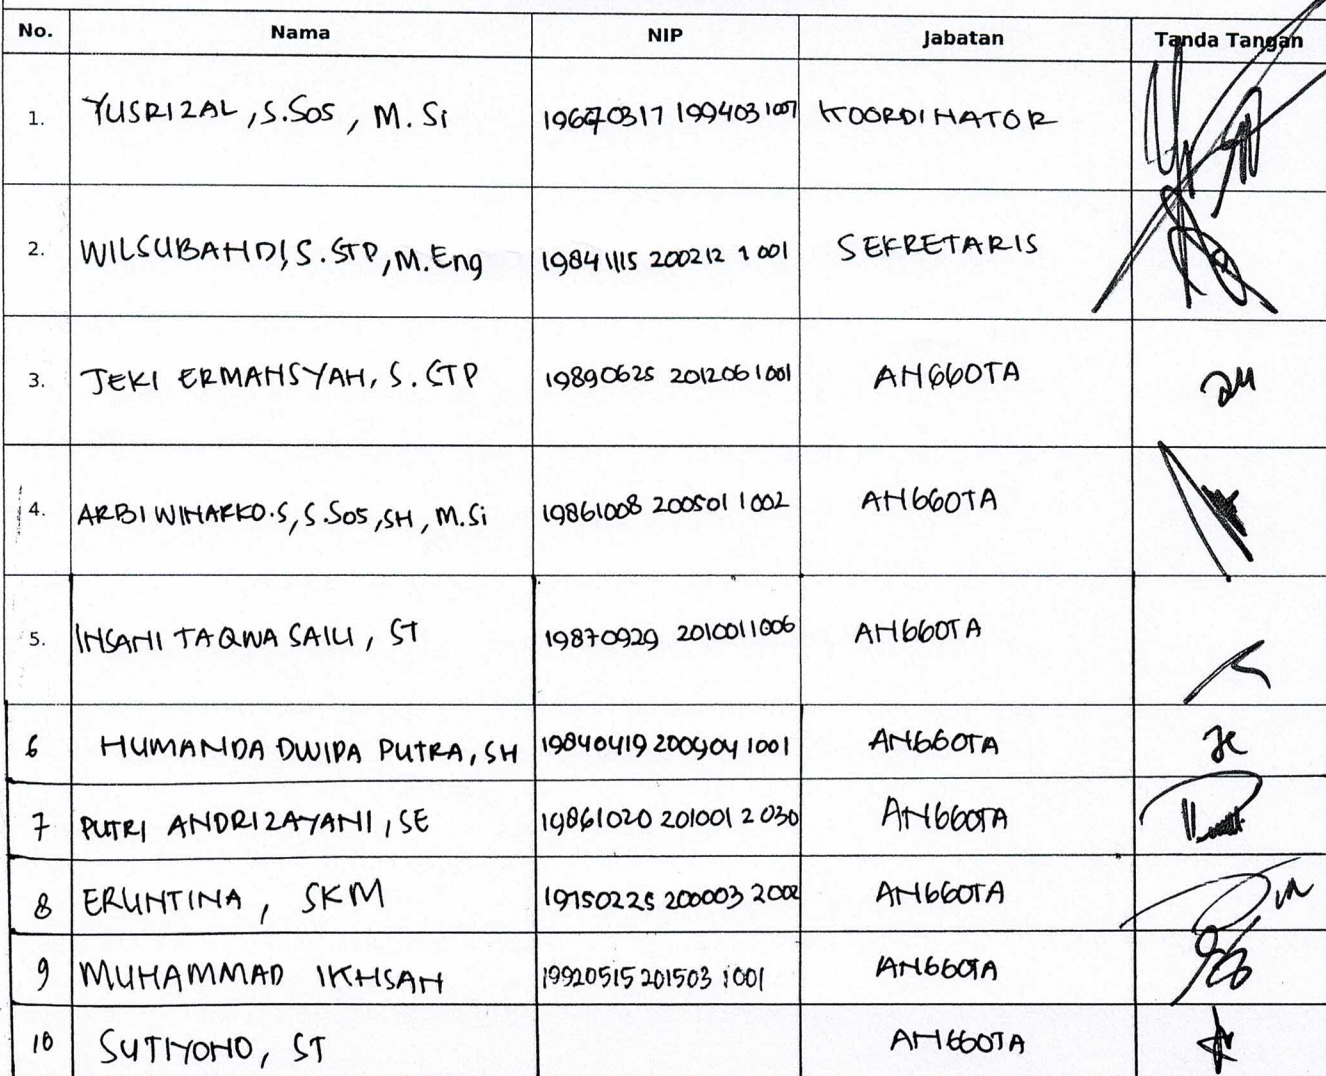 No. Nama NIP Jabatan Tanda Tangan
1. YUSRIZAL, S.Sos, M.Si 19670317 199403 1007 KOORDINATOR
2. WILSUBANDI, S.STP, M.Eng 19841115 200212 1 001 SEKRETARIS
3. JEKI ERMANSYAH, S.STP 19890625 201206 1001 ANGGOTA
4. ARBI WINARKO.S, S.Sos, SH, M.Si 19861008 200501 1 002 ANGGOTA
5. INSANI TAQWA SAILI, ST 19870929 201001 1006 ANGGOTA
6 HUMANDA DWIPA PUTRA, SH 19840419 200904 1001 ANGGOTA
7 PUTRI ANDRIZAYANI, SE 19861020 201001 2 030 ANGGOTA
8 ERLINTINA, SKM 19750225 200003 2002 ANGGOTA
9 MUHAMMAD IKHSAN 19920515 201503 1001 ANGGOTA
10 SUTIYONO, ST ANGGOTA